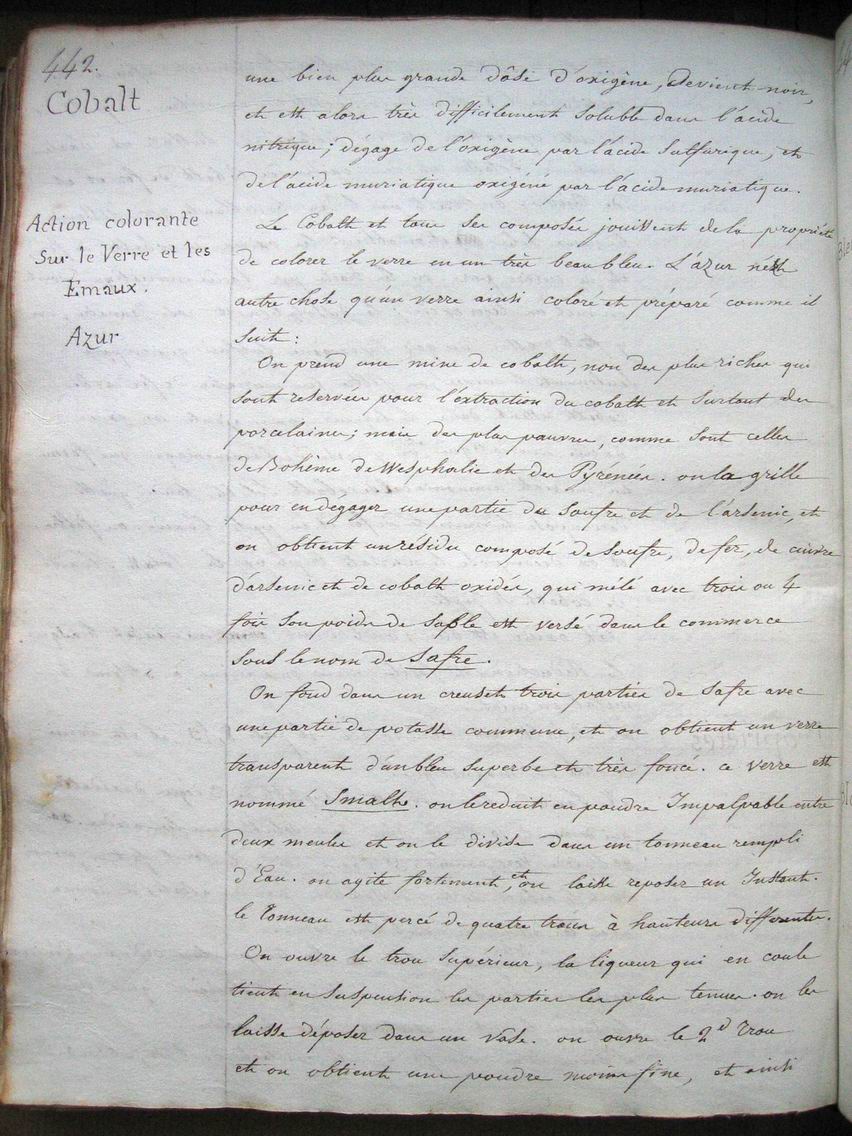 442.
Cobalt
une bien plus grande dôse d'oxigène, devient noir,
et est alors très difficilement soluble dans l'acide
nitrique; dégage de l'oxigène par l'acide sulfurique, et
de l'acide muriatique oxigéné par l'acide muriatique.
Action colorante
Sur le Verre et les
Emaux.
Azur
Le Cobalt et tous ses composés jouissent de la propriété
de colorer le verre en un très beau bleu. L'azur n'est
autre chose qu'un verre ainsi coloré et préparé comme il
suit:
On prend une mine de cobalt, non des plus riches qui
sont reservées pour l'extraction du cobalt et surtout des
porcelaines; mais des plus pauvres, comme sont celles
de Bohême de Wesphalie et des Pyrénées. on la grille
pour en dégager une partie du soufre et de l'arsenic, et
on obtient un résidu composé de soufre, de fer, de cuivre
d'arsenic et de cobalt oxidés, qui mêlé avec trois ou 4
fois son poids de sable est versé dans le commerce
sous le nom de Safre.
On fond dans un creuset trois parties de Safre avec
une partie de potasse commune, et on obtient un verre
transparent d'un bleu superbe et très foncé. ce verre est
nommé Smalt. on le reduit en poudre Impalpable entre
deux meules et on le divise dans un tonneau rempli
d'Eau. on agite fortement, et on laisse reposer un Instant.
le Tonneau est percé de quatre trous à hauteurs differentes.
On ouvre le trou Supérieur, la liqueur qui en coule
tient en suspension les parties les plus tenues. on les
laisse déposer dans un vâse. on ouvre le 2d Trou
et on obtient une poudre moins fine, et ainsi